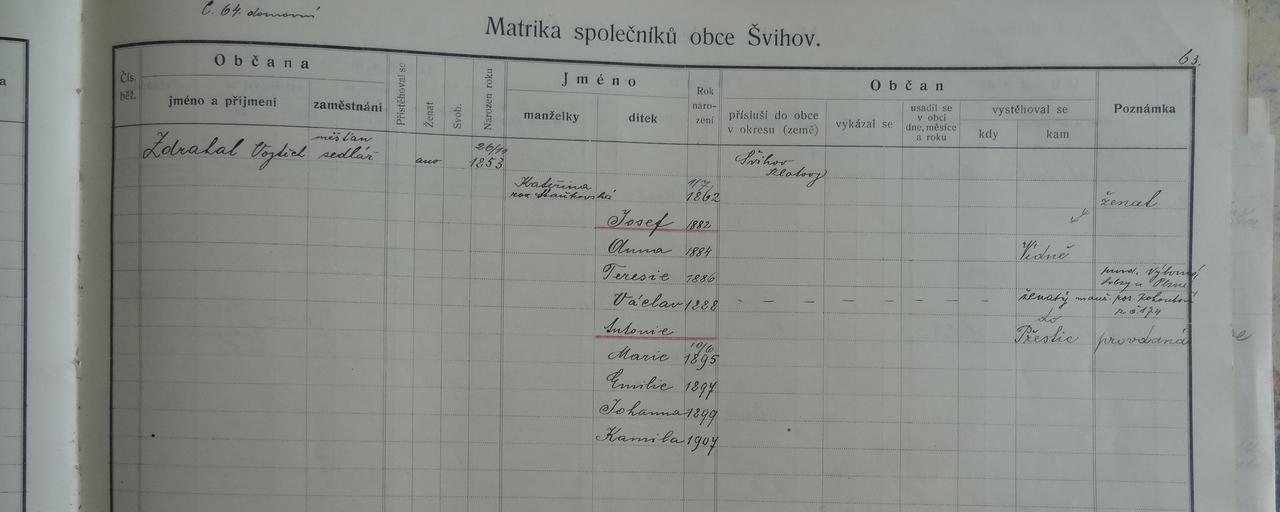 Č. 64. domovní
Matrika společníků obce Švihov.
63.
Čís. běž.
Občana
jméno a příjmení
zaměstnání
Přistěhoval se
Ženat
Svob.
Narozen roku
Jméno
manželky
dítek
Rok naro- zení
Občan
přísluší do obce v okresu (země)
vykázal se
usadil se v obci dne, měsíce a roku
vystěhoval se
kdy
kam
Poznámka
Zdrahal Vojtěch
měšťan
sedlář
ano
1853
Švihov
Klatovy
Kateřina
roz. Staňkovská
1/7
1862
ženat
Josef 1882
Anna 1884 Vídně
Teresie 1886
Václav 1888 – – – – – – – – – ženatý
Antonie
do
Přestic provdaná
10/6
Marie 1895
Emilie 1897
Johanna 1899
Kamila 1907